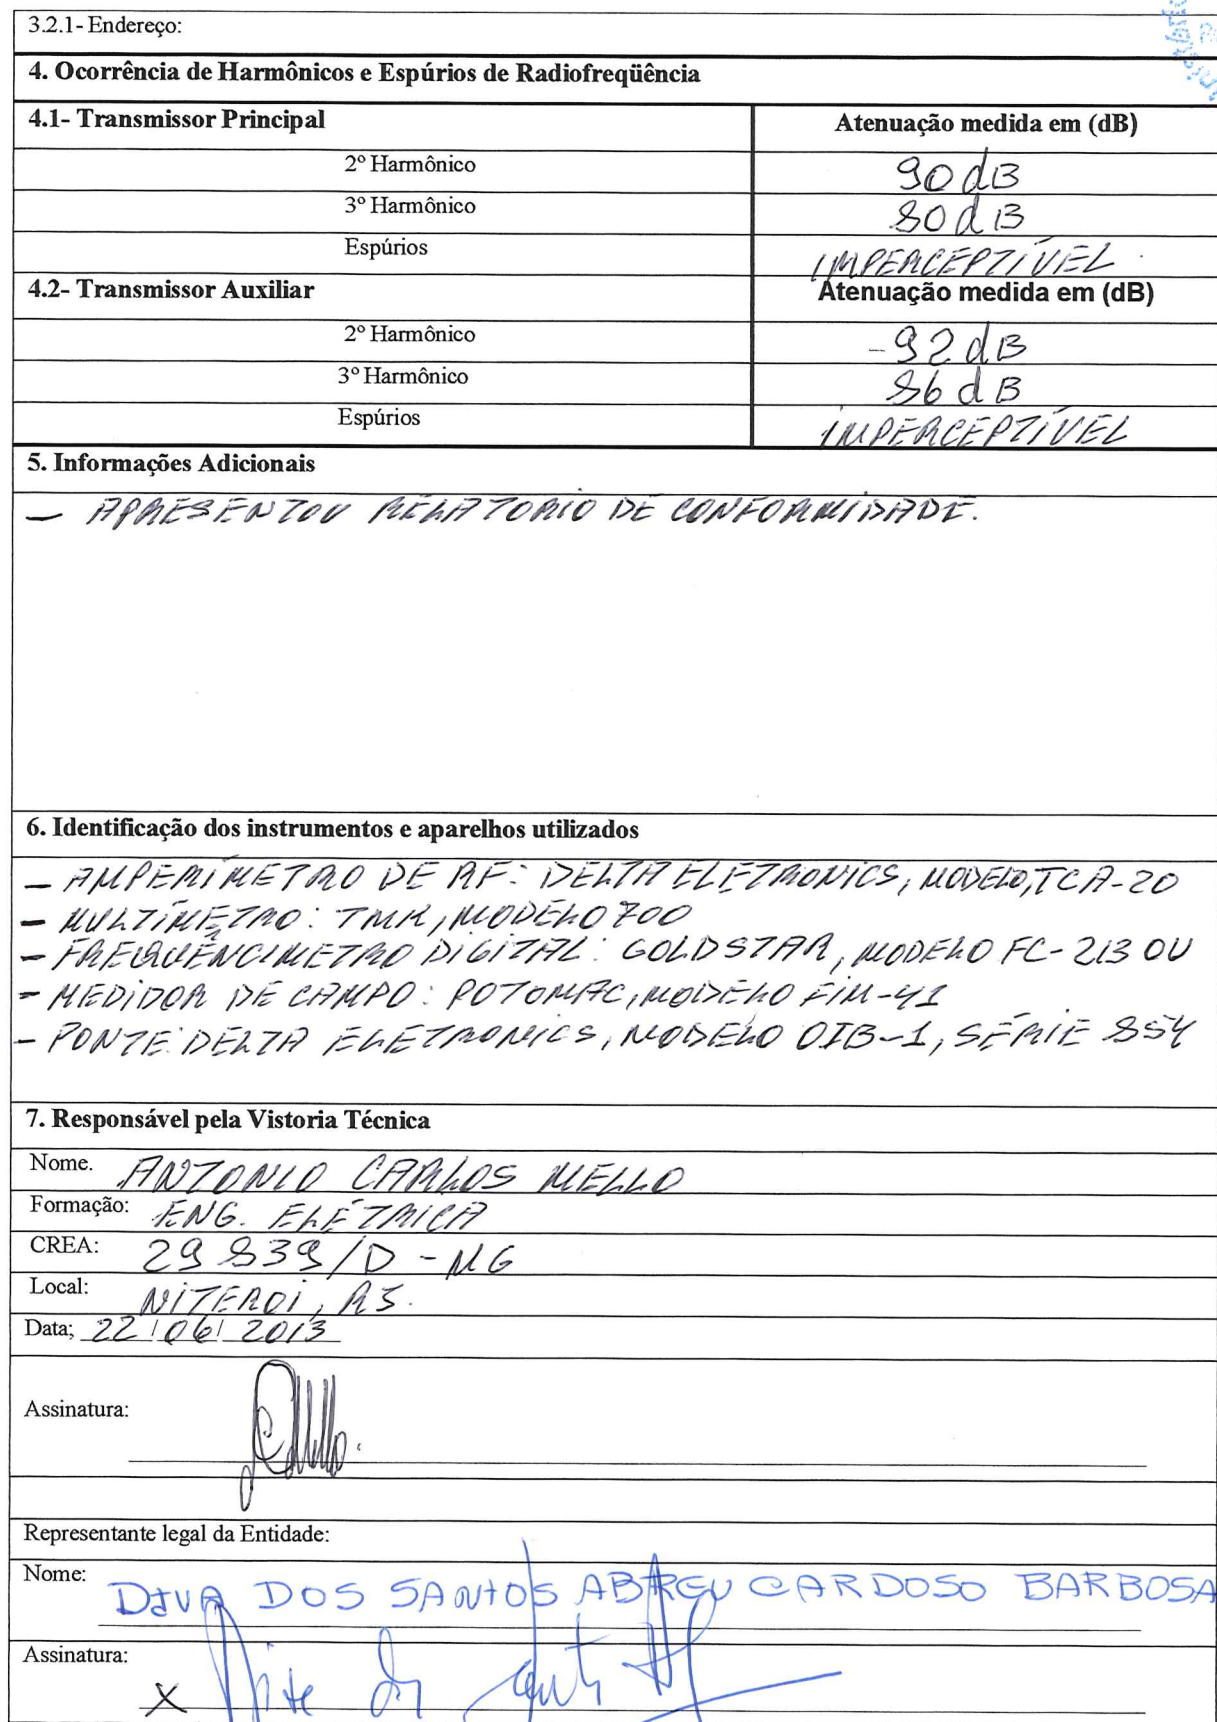 3.2.1- Endereço:
4. Ocorrência de Harmônicos e Espúrios de Radiofreqüência
4.1- Transmissor Principal Atenuação medida em (dB)
2º Harmônico 90 dB
3º Harmônico 80 dB
Espúrios IMPERCEPTÍVEL
4.2- Transmissor Auxiliar Atenuação medida em (dB)
2º Harmônico -92 dB
3º Harmônico 86 dB
Espúrios IMPERCEPTÍVEL
5. Informações Adicionais
- APRESENTOU RELATORIO DE CONFORMIDADE.
6. Identificação dos instrumentos e aparelhos utilizados
- AMPERIMETRO DE RF: DELTA ELETRONICS, MODELO, TCA-20
- MULTÍMETRO: TMK, MODELO 700
- FREQUÊNCIMETRO DIGITAL: GOLDSTAR, MODELO FC-213 OU
- MEDIDOR DE CAMPO: POTOMAC, MODELO FIM-41
- PONTE: DELTA ELETRONICS, MODELO OIB-1, SÉRIE 854
7. Responsável pela Vistoria Técnica
Nome. ANTONIO CARLOS MELLO
Formação: ENG. ELÉTRICA
CREA: 29 839/D - MG
Local: NITEROI, RJ.
Data; 22/06/2013
Assinatura:
Representante legal da Entidade:
Nome: DIVA DOS SANTOS ABREU CARDOSO BARBOSA
Assinatura:
X